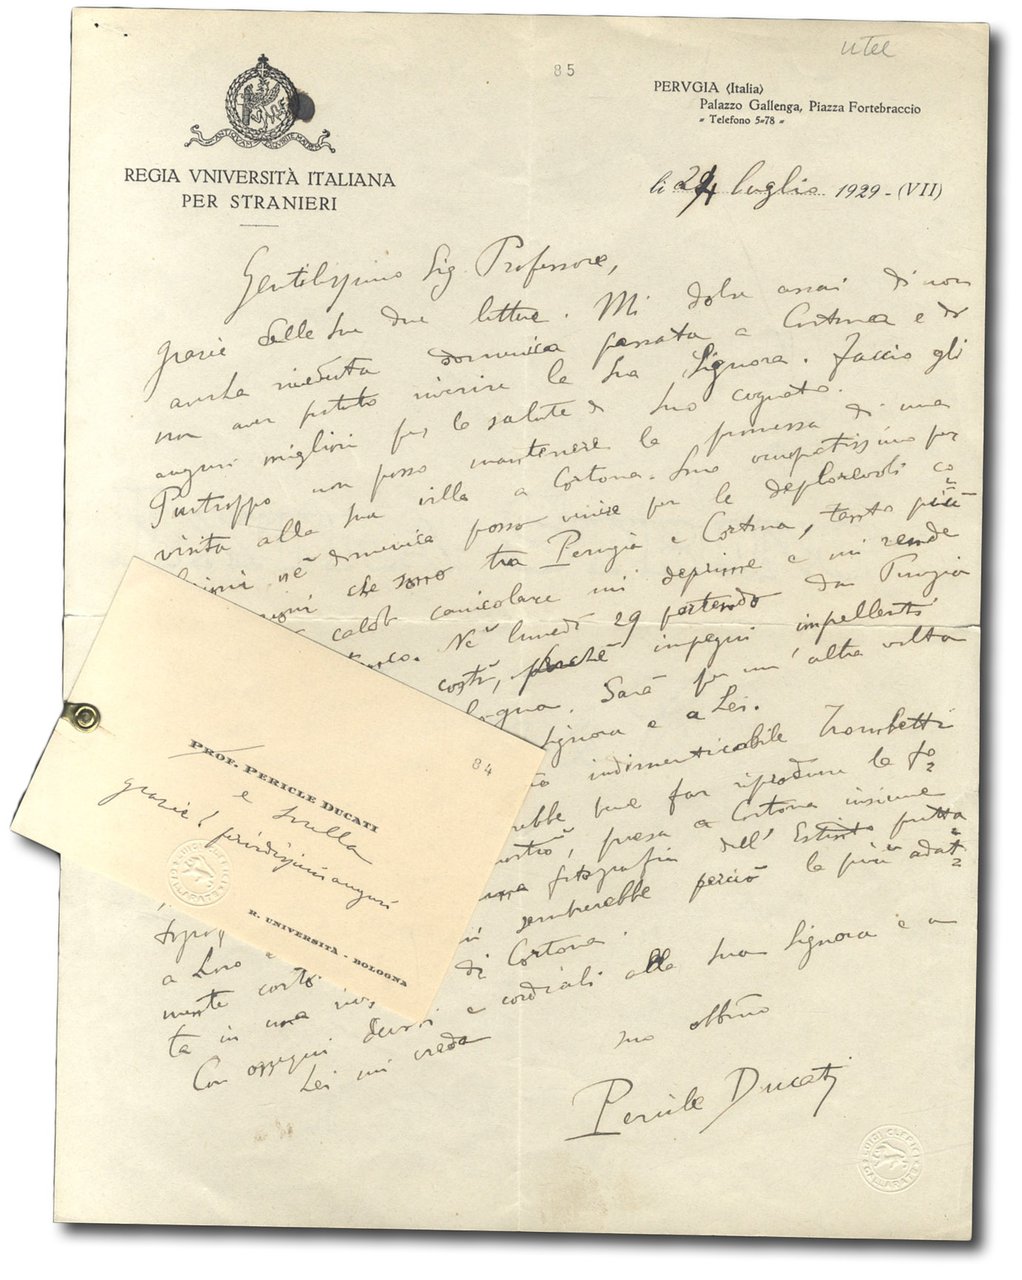 utee
85
REGIA VNIVERSITÀ ITALIANA
PER STRANIERI
PERVGIA (Italia)
Palazzo Gallenga, Piazza Fortebraccio
Telefono 5-78
li 24 luglio 1929 - (VII)
Gentilissimo Sig. Professore,
grazie delle Sue due lettere. Mi dolse assai di non
averLa riveduta domenica passata a Cortona e di
non aver potuto riverire la Sua Signora. Faccio gli
auguri migliori per la salute di Suo cognato.
Purtroppo non posso mantenere la promessa di una
visita alla Sua villa a Cortona. Sono occupatissimo per
nè domenica posso venire per le deplorevoli co
che sono tra Perugia e Cortona, tanto più
calore canicolare mi deprime e mi rende
Nè lunedì 29 partendo da Perugia
costì, perchè impegni impellenti
Sarà per un'altra volta
Signora e a Lei.
indimenticabile Trombetti
far riprodurre la fo=
presa a Cortona insieme
fotografia dell'Estinto fatta
sembrerebbe perciò la più adat=
a Loro
mente
di Cortona.
ta in una
Con ossequi devoti e cordiali alla Sua Signora e a
Lei mi creda
suo obbl.mo
Pericle Ducati
84
PROF. PERICLE DUCATI
e Sorella
grazie! fervidissimi auguri
R. UNIVERSITÀ - BOLOGNA
LUIGI CLERICI
GALLARATE
LUIGI CLERICI
GALLARATE